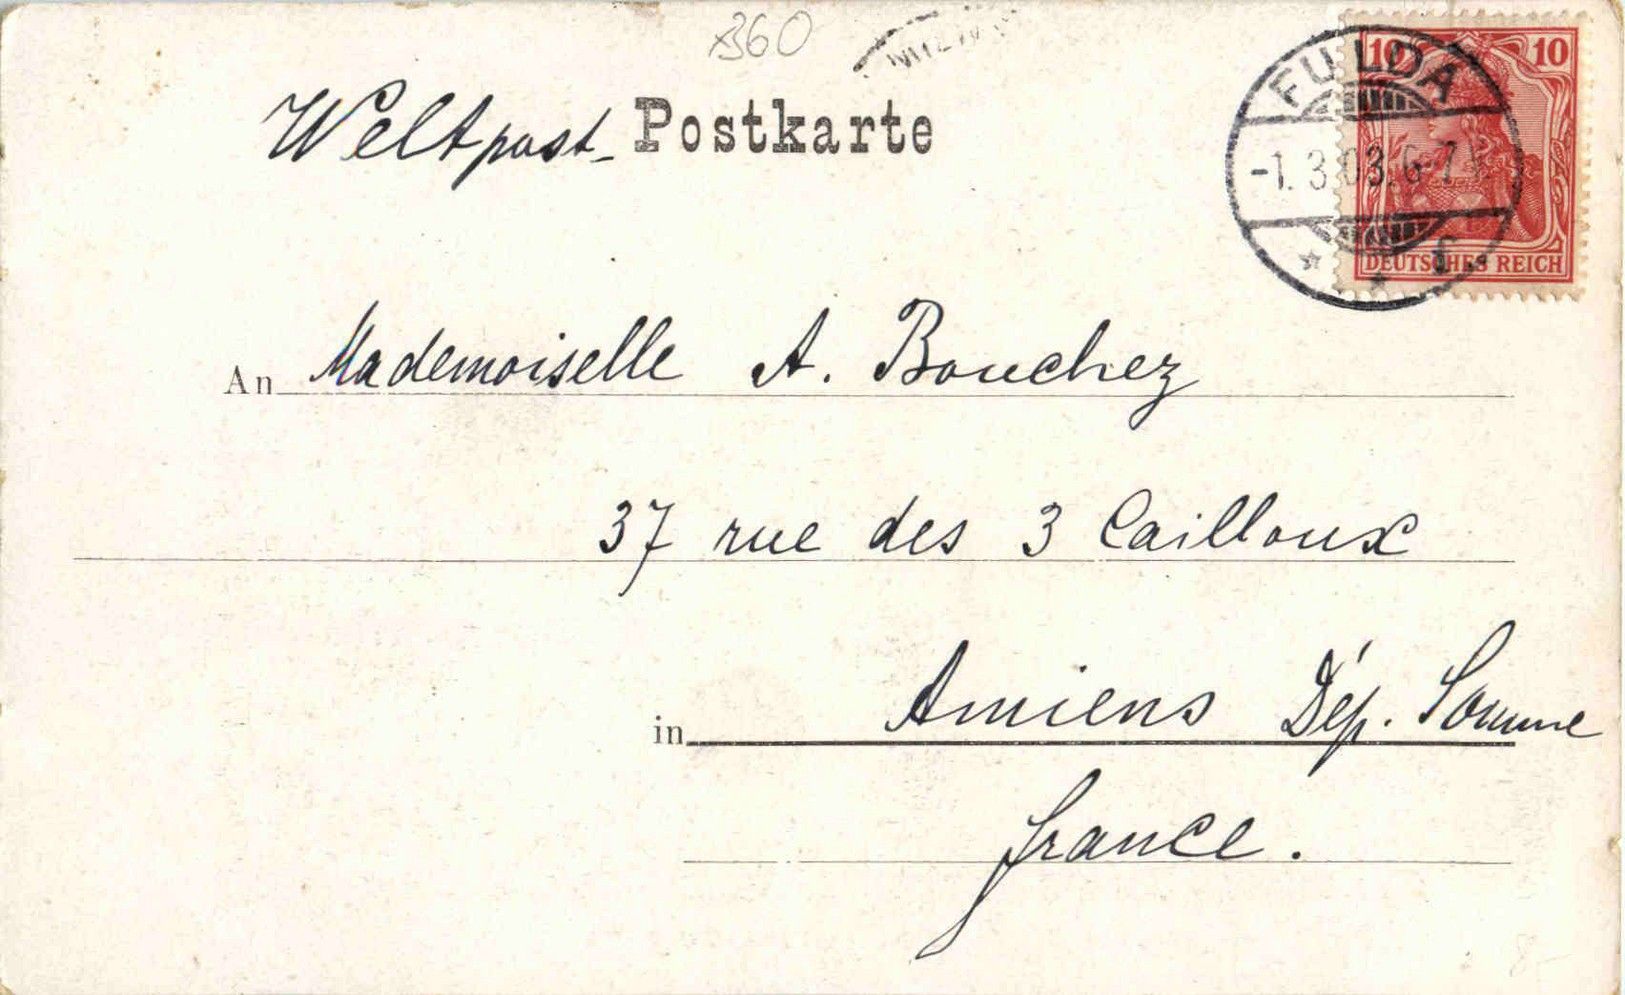 360
Weltpost- Postkarte
10 10
FULDA
-1. 3.03. 6-7
DEUTSCHES REICH
An Mademoiselle A. Bouchez
37 rue des 3 Cailloux
in Amiens Dép. Somme
france.
8-